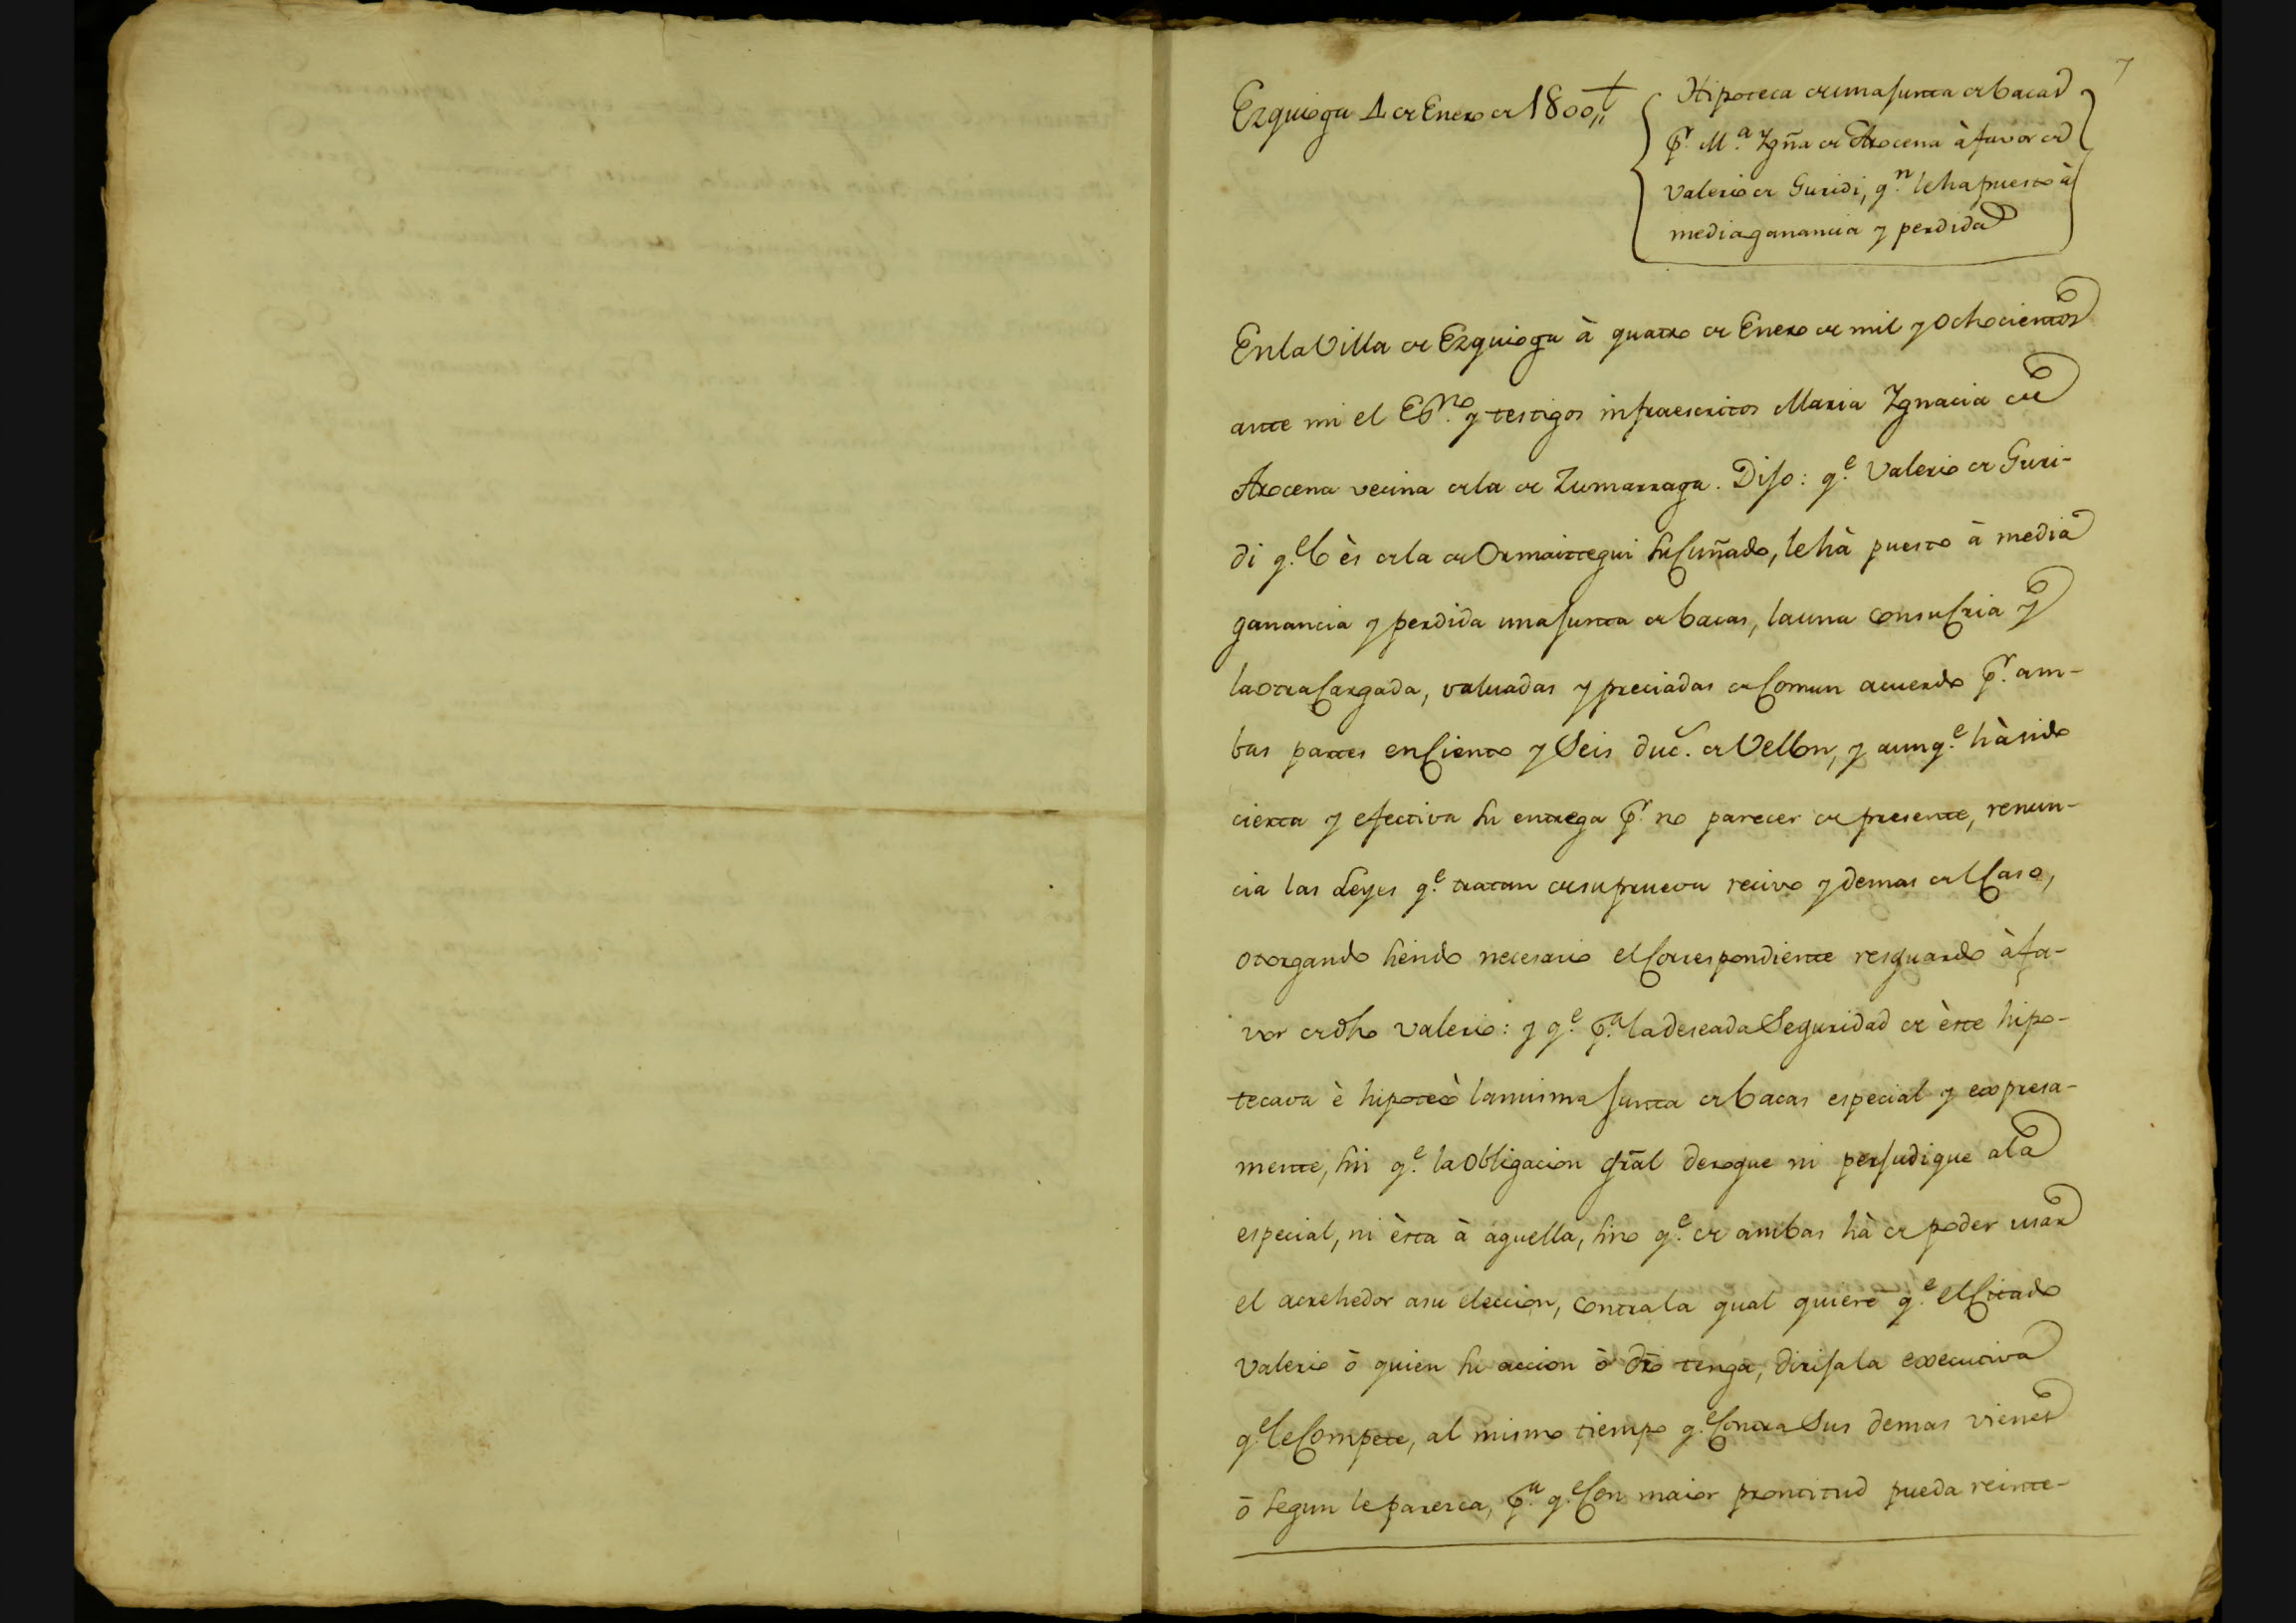 7
Ezquioga 4 de Enero de 1800,,
Hipoteca de una Junta de bacas
pr. Ma. Ygña de Arocena à favor de
Valerio de Guridi, qn. le ha puesto à
media ganancia y perdida
En la Villa de Ezquioga à quatro de Enero de mil y Ochocientos
ante mi el Esno. y testigos infraescritos Maria Ygnacia de
Arocena vecina de la de Zumarraga. Dijo: qe. Valerio de Guri-
di qe. lo ès de la de Ormaiztegui su Cuñado, le hà puesto à media
ganancia y perdida una Junta de bacas, la una con su Cria y
la otra Cargada, valuadas y preciadas de Comun acuerdo pr. am-
bas partes en Ciento y Seis duc. de Vellon, y aunqe. hà sido
cierta y efectiva su entrega pr. no parecer de presente, renun-
cia las Leyes qe. tratan de su prueva recivo y demas del Caso,
otorgando siendo necesario el Correspondiente resguardo à fa-
vor de dho Valerio: y qe. pa. la deseada Seguridad de èste hipo-
tecava è hipotecò la misma Junta de bacas especial y expresa-
mente, sin qe. la Obligacion gral derogue ni perjudique a la
especial, ni èsta à aquella, sino qe. de ambas hà de poder usar
el acrehedor a su eleccion, contra la qual quiere qe. el Citado
Valerio ò quien su accion ò dro tenga, dirija la executiva
qe. le Compete, al mismo tiempo qe. Contra Sus demas vienes
ò segun le paresca, pa. qe. Con maior prontitud pueda reinte-